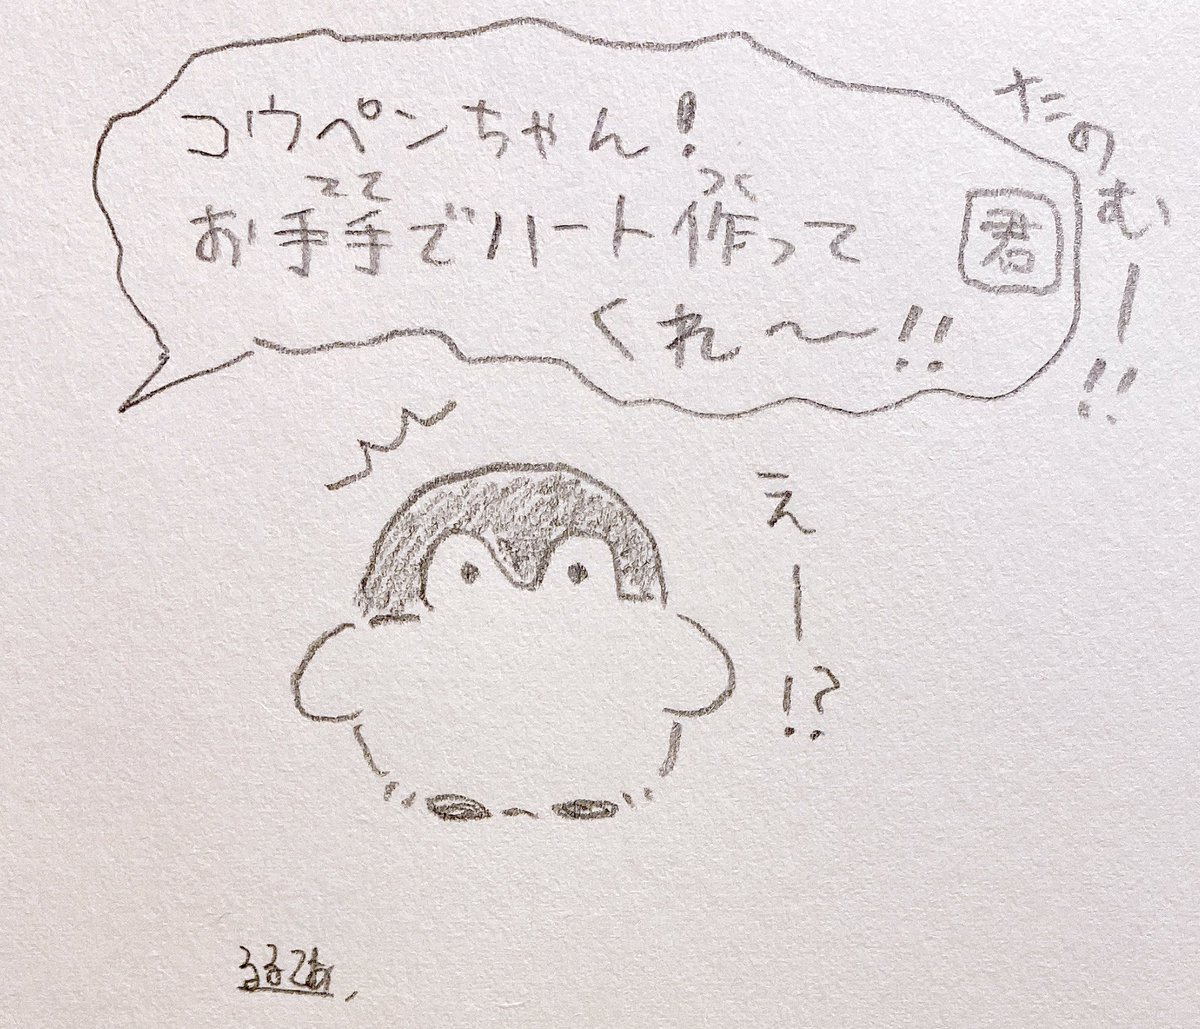 コウペンちゃん!
お手手でハート作って
てて つく
くれ〜!!
君
たのむー!!
えー!?
るるてあ